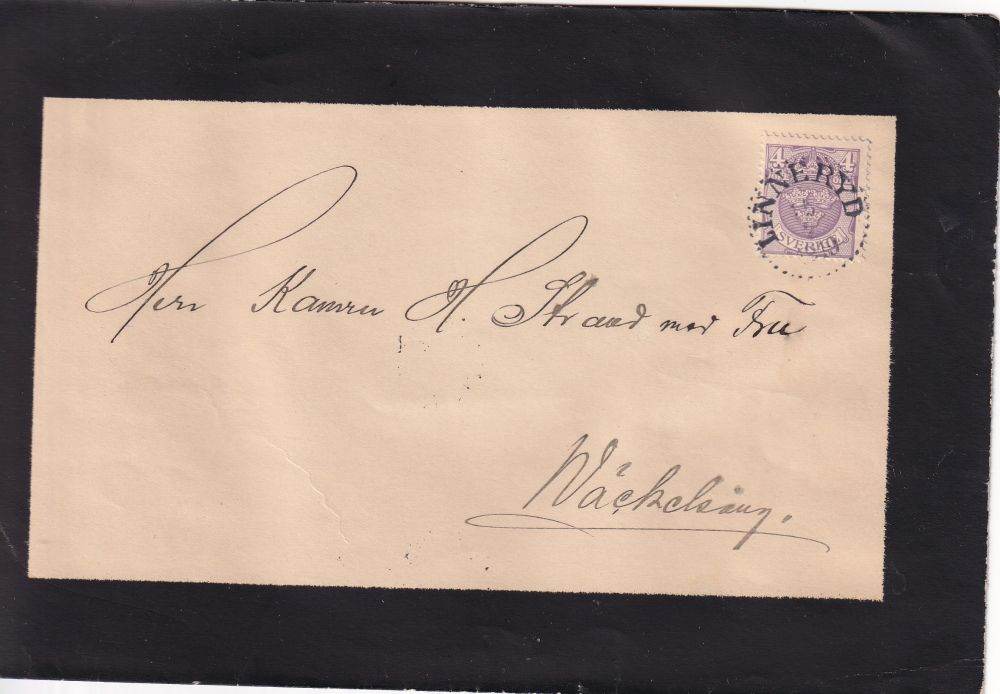 4 4
LINNERYD
SVERIGE
Herr Kamrer H. Strand med Fru
Wäckelsång.